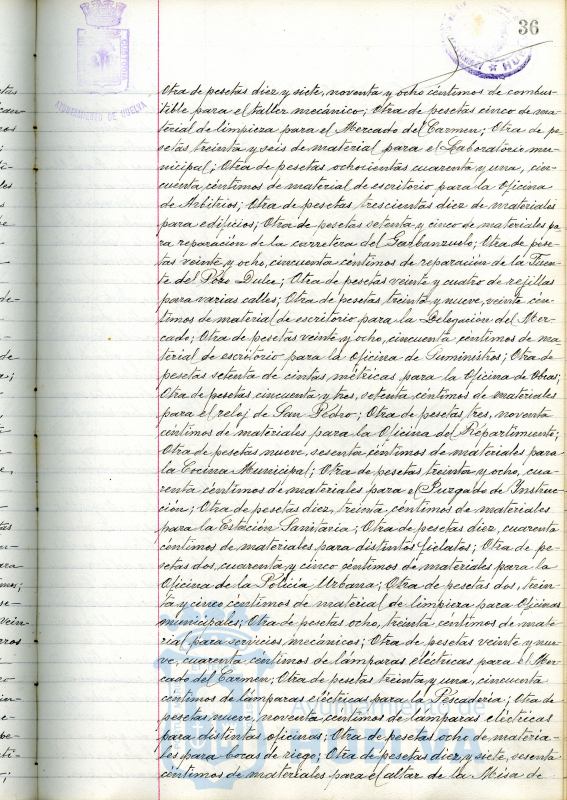 36
AYUNTAMIENTO DE HUELVA
Otra de pesetas diez y siete, noventa y ocho centimos de combus-
tible para el taller mecánico; Otra de pesetas cinco de ma-
terial de limpieza para el Mercado del Carmen; Otra de pe-
setas treinta y seis de material para el Laboratorio mu-
nicipal; Otra de pesetas ochocientas cuarenta y una, cin-
cuenta céntimos de material de escritorio para la oficina
de Arbitrios; Otra de pesetas trescientas diez de materiales
para edificios; Otra de pesetas setenta y cinco de materiales pa-
ra reparación de la carretera del Garbanzuelo; Otra de pese-
tas veinte y ocho, cincuenta céntimos de reparación de la Fuen-
te del Pozo Dulce; Otra de pesetas veinte y cuatro de rejillas
para varias calles; Otra de pesetas treinta y nueve, veinte cén-
timos de material de escritorio para la Delegación del Mer-
cado; Otra de pesetas veinte y ocho, cincuenta céntimos de ma-
terial de escritorio para la Oficina de Suministros; Otra de
pesetas setenta de cintas métricas para la Oficina de Obras;
Otra de pesetas cincuenta y tres, setenta céntimos de materiales
para el reloj de San Pedro; Otra de pesetas tres, noventa
céntimos de materiales para la Oficina de Repartimiento;
Otra de pesetas nueve, sesenta céntimos de materiales para
la Cocina Municipal; Otra de pesetas treinta y ocho, cua-
renta céntimos de materiales para el Juzgado de Instruc-
ción; Otra de pesetas diez, treinta céntimos de materiales
para la Estación Sanitaria; Otra de pesetas diez, cuarenta
céntimos de materiales para distintos fielatos; Otra de pe-
setas dos, cuarenta y cinco céntimos de materiales para la
Oficina de la Policía Urbana; Otra de pesetas dos, trein-
ta y cinco céntimos de material de limpieza para Oficinas
municipales; Otra de pesetas ocho, treinta céntimos de mate-
rial para servicios mecánicos; Otra de pesetas veinte y nue-
ve, cuarenta céntimos de lamparas eléctricas para el Mer-
cado del Carmen; Otra de pesetas treinta y una, cincuenta
céntimos de lámparas eléctricas para la Pescaderia; Otra de
pesetas nueve, noventa céntimos de lamparas eléctricas
para distintas oficinas; Otra de pesetas ocho de materia-
les para bocas de riego; Otra de pesetas diez y siete, sesenta
céntimos de materiales para el altar de la Misa de
Ayuntamiento de
HUELVA